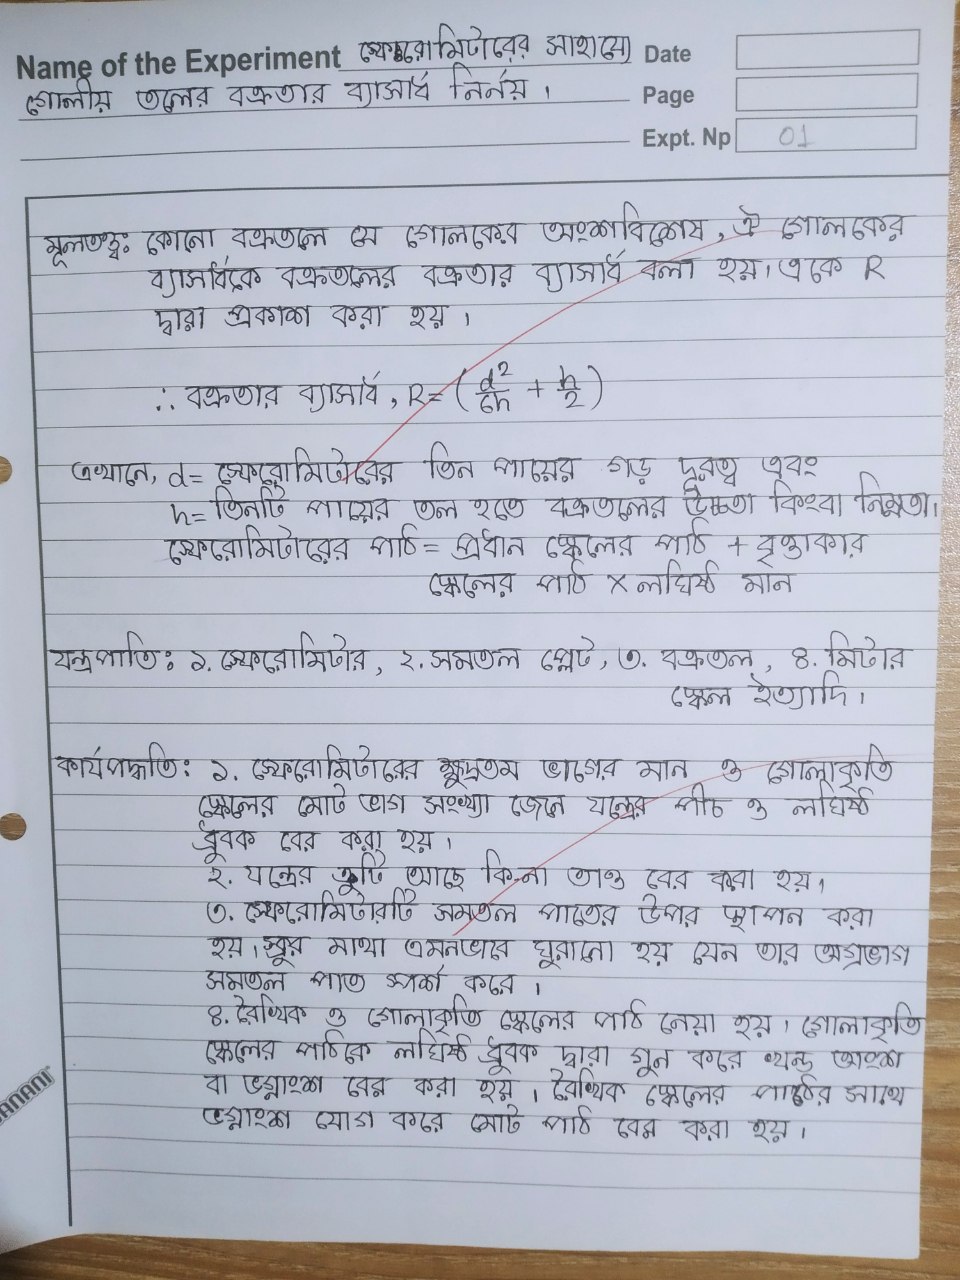 Name of the Experiment স্ফেরোমিটারের সাহায্যে
গোলীয় তলের বক্রতার ব্যাসার্ধ নির্নয়।
Date
Page
Expt. Np 01
মূলতত্ত্ব: কোনো বক্রতলে যে গোলকের অংশবিশেষ, ঐ গোলকের
ব্যাসার্ধকে বক্রতলের বক্রতার ব্যাসার্ধ বলা হয়। একে R
দ্বারা প্রকাশ করা হয়।
∴ বক্রতার ব্যাসার্ধ, R = (d²/6h + h/2)
এখানে, d = স্ফেরোমিটারের তিন পায়ের গড় দূরত্ব এবং
h = তিনটি পায়ের তল হতে বক্রতলের উচ্চতা কিংবা নিম্নতা।
স্ফেরোমিটারের পাঠ = প্রধান স্কেলের পাঠ + বৃত্তাকার
স্কেলের পাঠ × লঘিষ্ঠ মান
যন্ত্রপাতি: ১. স্ফেরোমিটার, ২. সমতল প্লেট, ৩. বক্রতল, ৪. মিটার
স্কেল ইত্যাদি।
কার্যপদ্ধতি: ১. স্ফেরোমিটারের ক্ষুদ্রতম ভাগের মান ও গোলাকৃতি
স্কেলের মোট ভাগ সংখ্যা জেনে যন্ত্রের পীচ ও লঘিষ্ঠ
ধ্রুবক বের করা হয়।
২. যন্ত্রের ত্রুটি আছে কি-না তাও বের করা হয়।
৩. স্ফেরোমিটারটি সমতল পাতের উপর স্থাপন করা
হয়। স্ক্রুর মাথা এমনভাবে ঘুরানো হয় যেন তার অগ্রভাগ
সমতল পাত স্পর্শ করে।
৪. রৈখিক ও গোলাকৃতি স্কেলের পাঠ নেয়া হয়। গোলাকৃতি
স্কেলের পাঠকে লঘিষ্ঠ ধ্রুবক দ্বারা গুন করে খন্ড অংশ
বা ভগ্নাংশ বের করা হয়। রৈখিক স্কেলের পাঠের সাথে
ভগ্নাংশ যোগ করে মোট পাঠ বের করা হয়।
ANANI